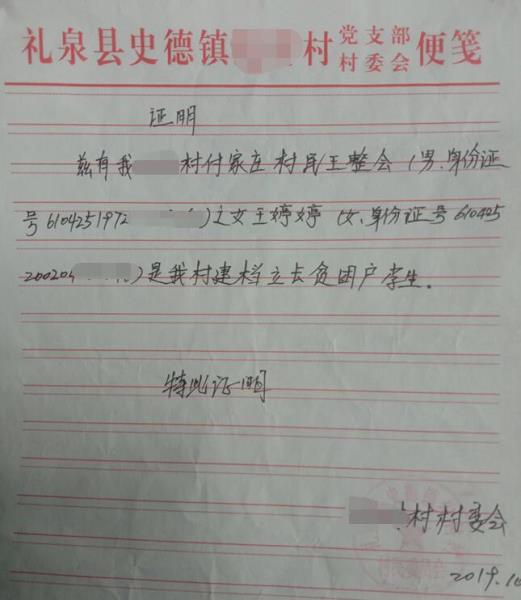 礼泉县史德镇 村党支部村委会便笺
证明
兹有我 村付家庄村民王整会(男、身份证
号6104251972 )之女王婷婷(女、身份证号610425
200204 )是我村建档立卡贫困户学生.
特此证明
村村委会
2019.10